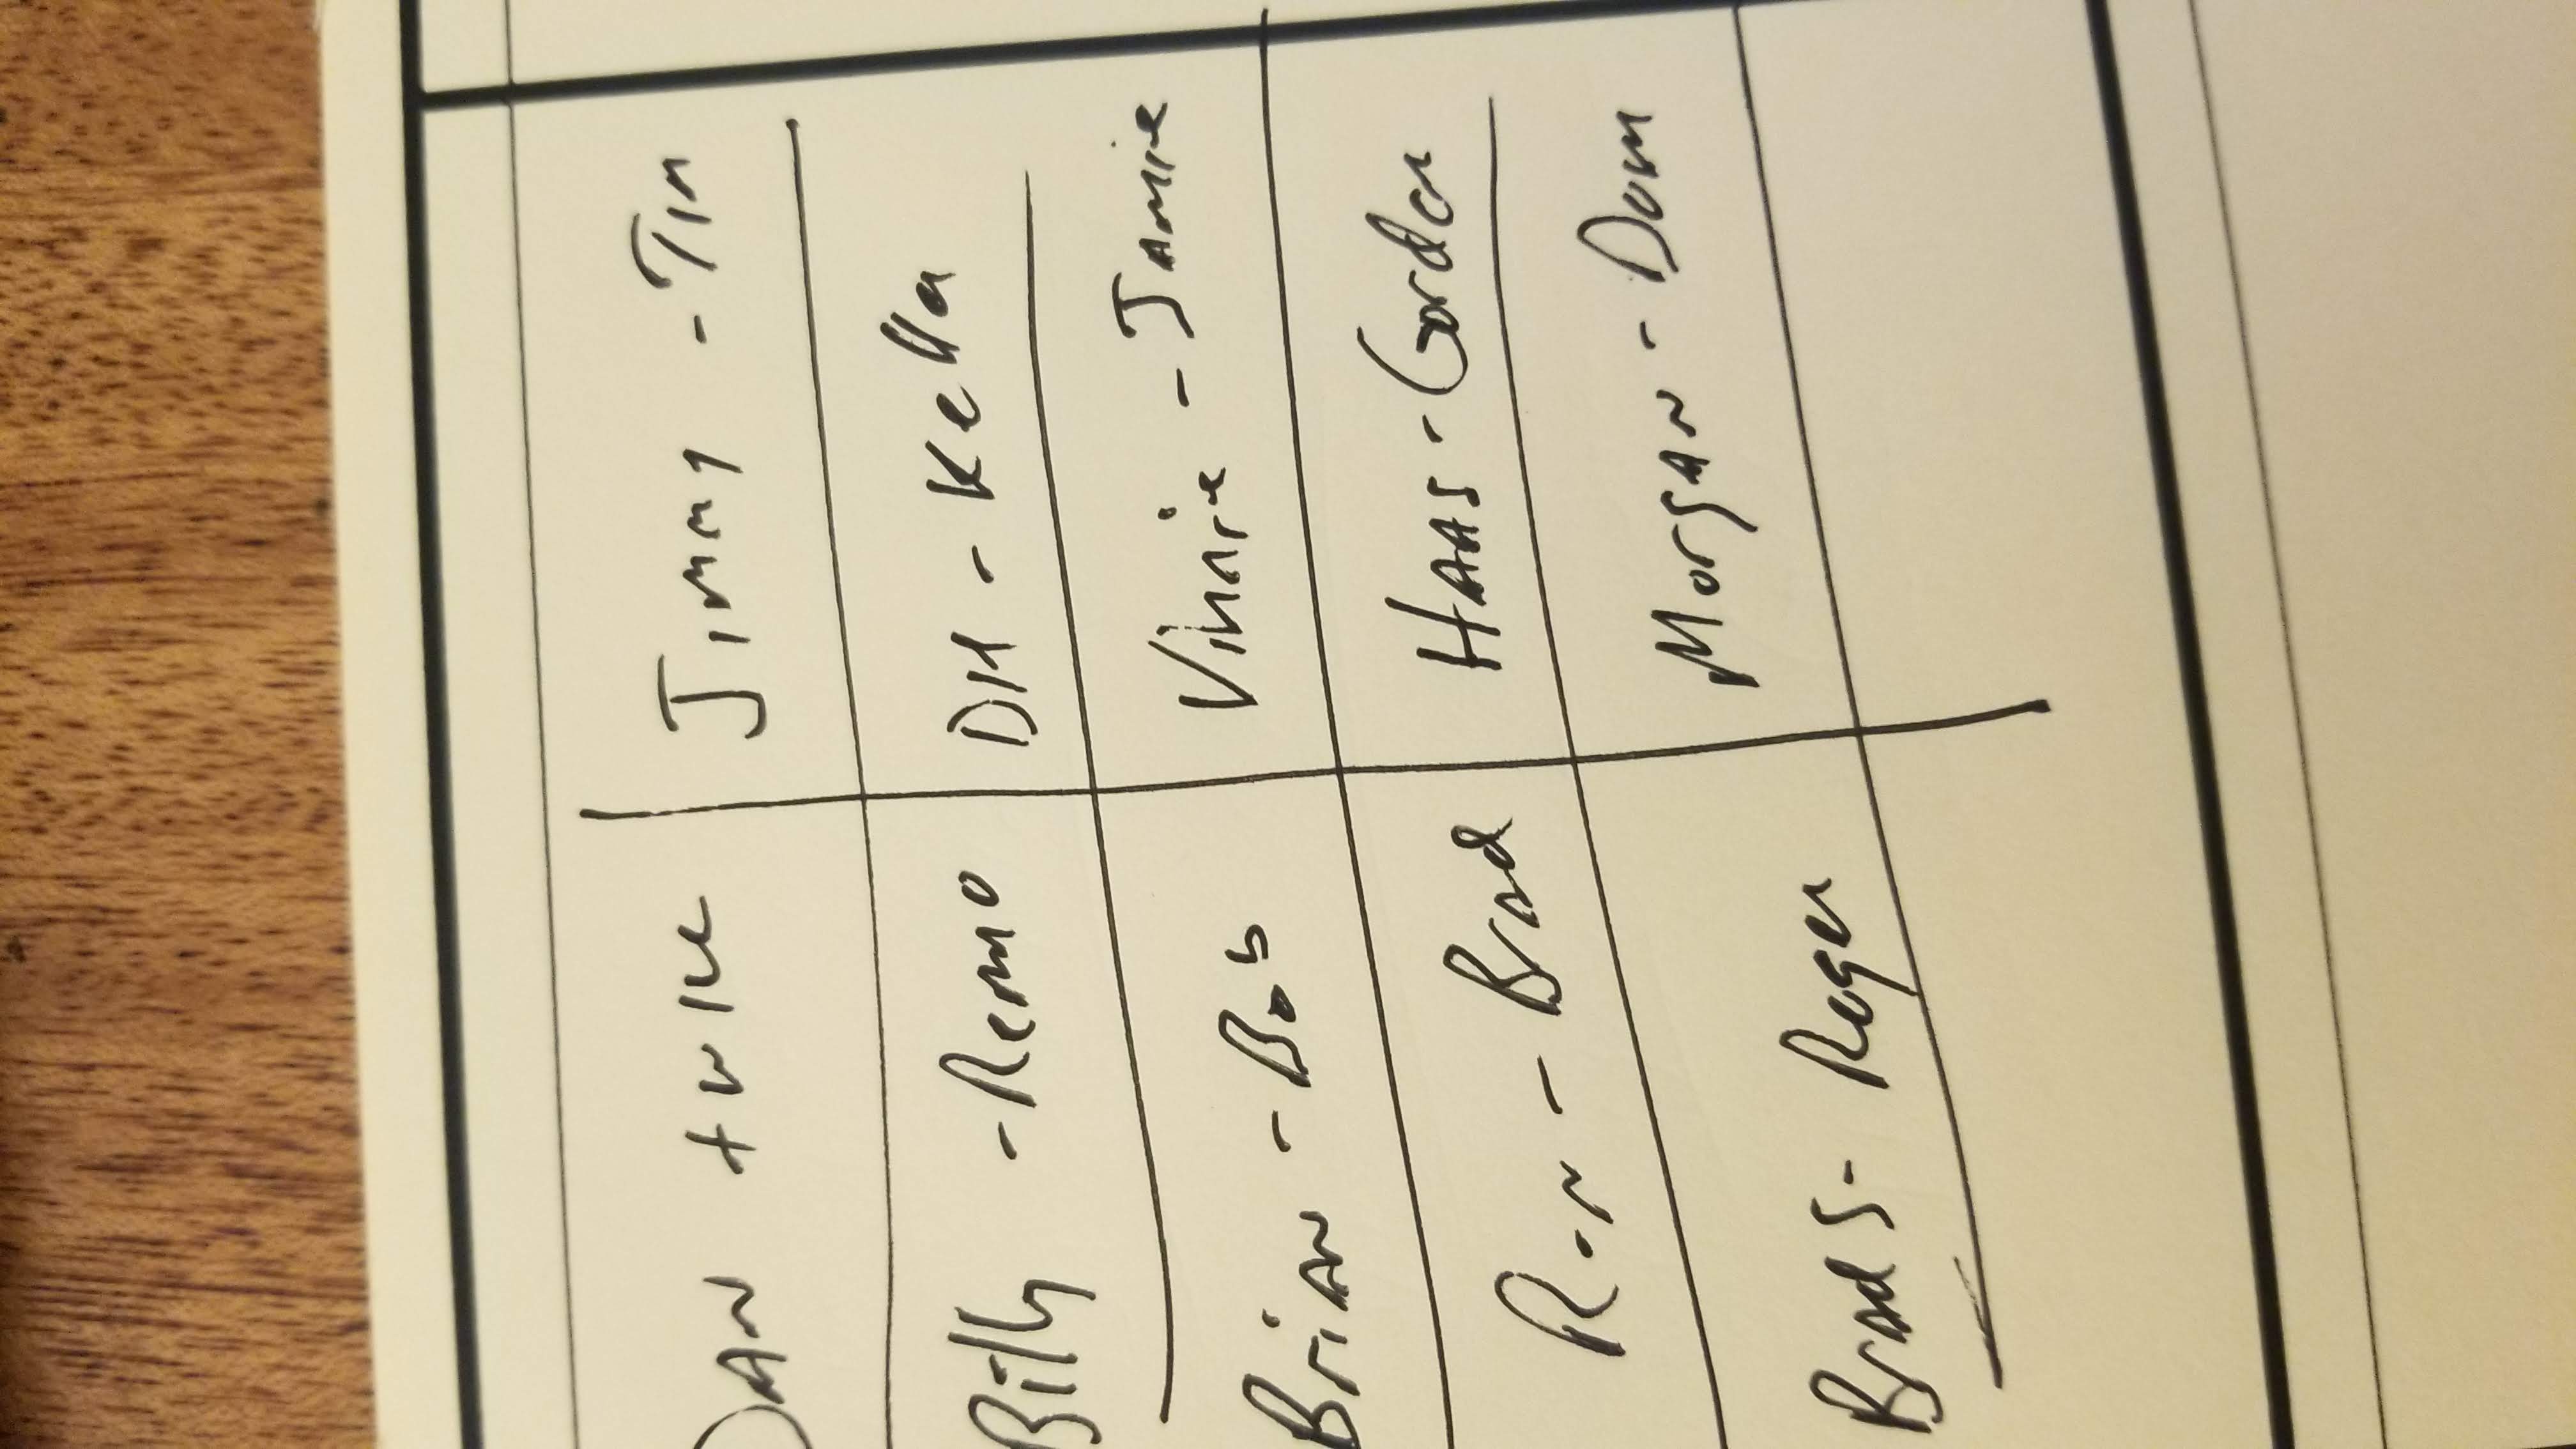 DAN + WIK Jimmy - Tim
Billy - Remo DH - Kella
Brian - Bob Vinnie - Jamie
Ron - Brad HAAS - Gordon
Brad S - Roger Morgan - Dom